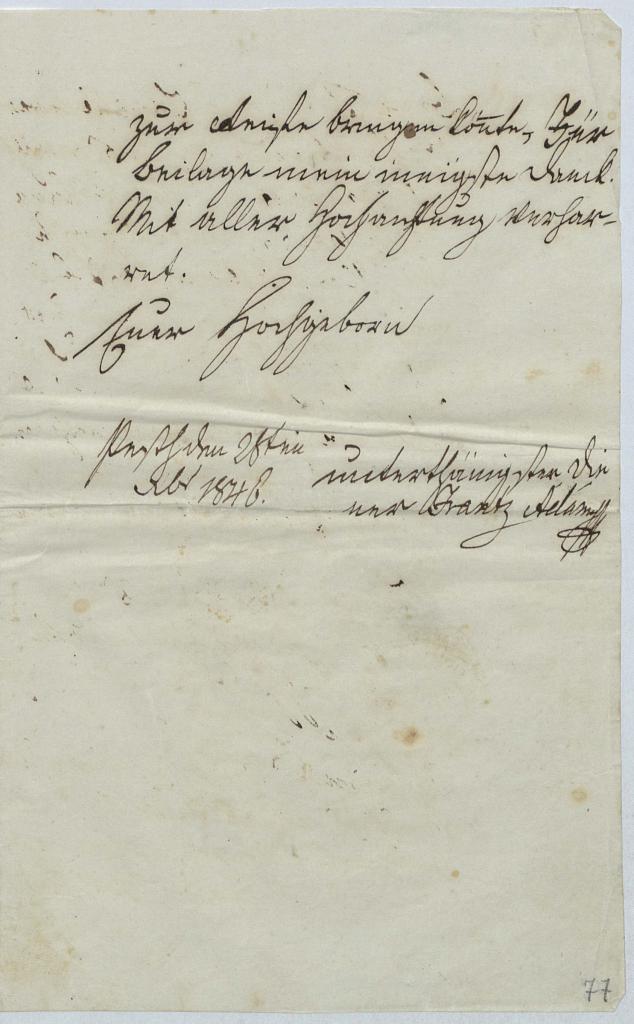 zur Reise bringen könte, Für
Beilage mein innigste Danck.
Mit aller Hochachtung verhar-
ret.
Euer Hochgeborn
Pesth den 28ten
1846.
unterthänigster Die
ner Frantz Adam
77